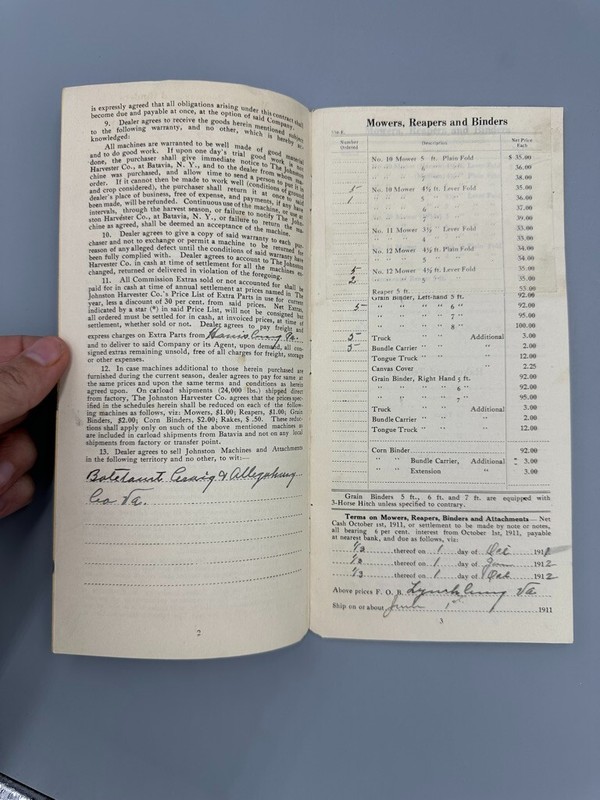 is expressly agreed that all obligations arising under this contract shall
become due and payable at once, at the option of said Company.
9. Dealer agrees to receive the goods herein mentioned subject
to the following warranty, and no other, which is hereby ac-
knowledged:
All machines are warranted to be well made of good material
and to do good work. If upon one day's trial good work is not
done, the purchaser shall give immediate notice to The Johnston
Harvester Co., at Batavia, N. Y., and to the dealer from whom ma-
chine was purchased, and allow time to send a person to put it in
order. If it cannot then be made to work well (conditions of ground
and crop considered), the purchaser shall return it at once to said
dealer's place of business, free of expense, and payments, if any have
been made, will be refunded. Continuous use of the machine, or use at
intervals, through the harvest season, or failure to notify The John-
ston Harvester Co., at Batavia, N. Y., or failure to return the ma-
chine as agreed, shall be deemed an acceptance of the machine.
10. Dealer agrees to give a copy of said warranty to each pur-
chaser and not to exchange or permit a machine to be returned for
reason of any alleged defect until the conditions of said warranty have
been fully complied with. Dealer agrees to account to The Johnston
Harvester Co. in cash at time of settlement for all the machines ex-
changed, returned or delivered in violation of the foregoing.
11. All Commission Extras sold or not accounted for shall be
paid for in cash at time of annual settlement at prices named in The
Johnston Harvester Co.'s Price List of Extra Parts in use for current
year, less a discount of 30 per cent. from said prices. Net Extras,
indicated by a star (*) in said Price List, will not be consigned but
all ordered must be settled for in cash, at invoiced prices, at time of
settlement, whether sold or not. Dealer agrees to pay freight and
express charges on Extra Parts from
and to deliver to said Company or its Agent, upon demand, all con-
signed extras remaining unsold, free of all charges for freight, storage
or other expenses.
12. In case machines additional to those herein purchased are
furnished during the current season, dealer agrees to pay for same at
the same prices and upon the same terms and conditions as herein
agreed upon. On carload shipments (24,000 lbs.) shipped direct
from factory, The Johnston Harvester Co. agrees that the prices spec-
ified in the schedules herein shall be reduced on each of the follow-
ing machines as follows, viz: Mowers, $1.00; Reapers, $1.00; Grain
Binders, $2.00; Corn Binders, $2.00; Rakes, $ .50. These reduc-
tions shall apply only on such of the above mentioned machines as
are included in carload shipments from Batavia and not on any local
shipments from factory or transfer point.
13. Dealer agrees to sell Johnston Machines and Attachments
in the following territory and no other, to wit:—
Botetourt Craig & Alleghany
Co Va.
2
Mowers, Reapers and Binders
Number Ordered Description Net Price Each
No. 10 Mower 5 ft. Plain Fold $ 35.00
" " " 6 " " " 36.00
" " " 7 " " " 38.00
5 No. 10 Mower 4½ ft. Lever Fold 35.00
1 " " " 5 " " " 35.00
" " " 6 " " " 37.00
" " " 7 " " " 39.00
No. 11 Mower 3½ " Lever Fold 33.00
" " " 4 " " " 33.00
No. 12 Mower 4½ ft. Plain Fold 34.00
" " " 5 " " " 34.00
5 No. 12 Mower 4½ ft. Lever Fold 35.00
2 " " " 5 " " " 35.00
Reaper 5 ft. 55.00
Grain Binder, Left-hand 5 ft. 92.00
5 " " " " 6 " 92.00
" " " " 7 " 95.00
" " " " 8 " 100.00
5 Truck " " " Additional 3.00
5 Bundle Carrier " " " 2.00
Tongue Truck " " " 12.00
Canvas Cover " " 2.25
Grain Binder, Right Hand 5 ft. 92.00
" " " " 6 " 92.00
" " " " 7 " 95.00
Truck " " Additional 3.00
Bundle Carrier " " " 2.00
Tongue Truck " " " 12.00
Corn Binder 92.00
" " Bundle Carrier, Additional 3.00
" " Extension " 3.00
Grain Binders 5 ft., 6 ft. and 7 ft. are equipped with
3-Horse Hitch unless specified to contrary.
Terms on Mowers, Reapers, Binders and Attachments—Net
Cash October 1st, 1911, or settlement to be made by note or notes,
all bearing 6 per cent. interest from October 1st, 1911, payable
at nearest bank, and due as follows, viz:
1/3 thereof on 1 day of Oct 1911
1/3 thereof on 1 day of Jan 1912
1/3 thereof on 1 day of Oct 1912
Above prices F. O. B. Lynchburg Va
Ship on or about June 1st 1911
3